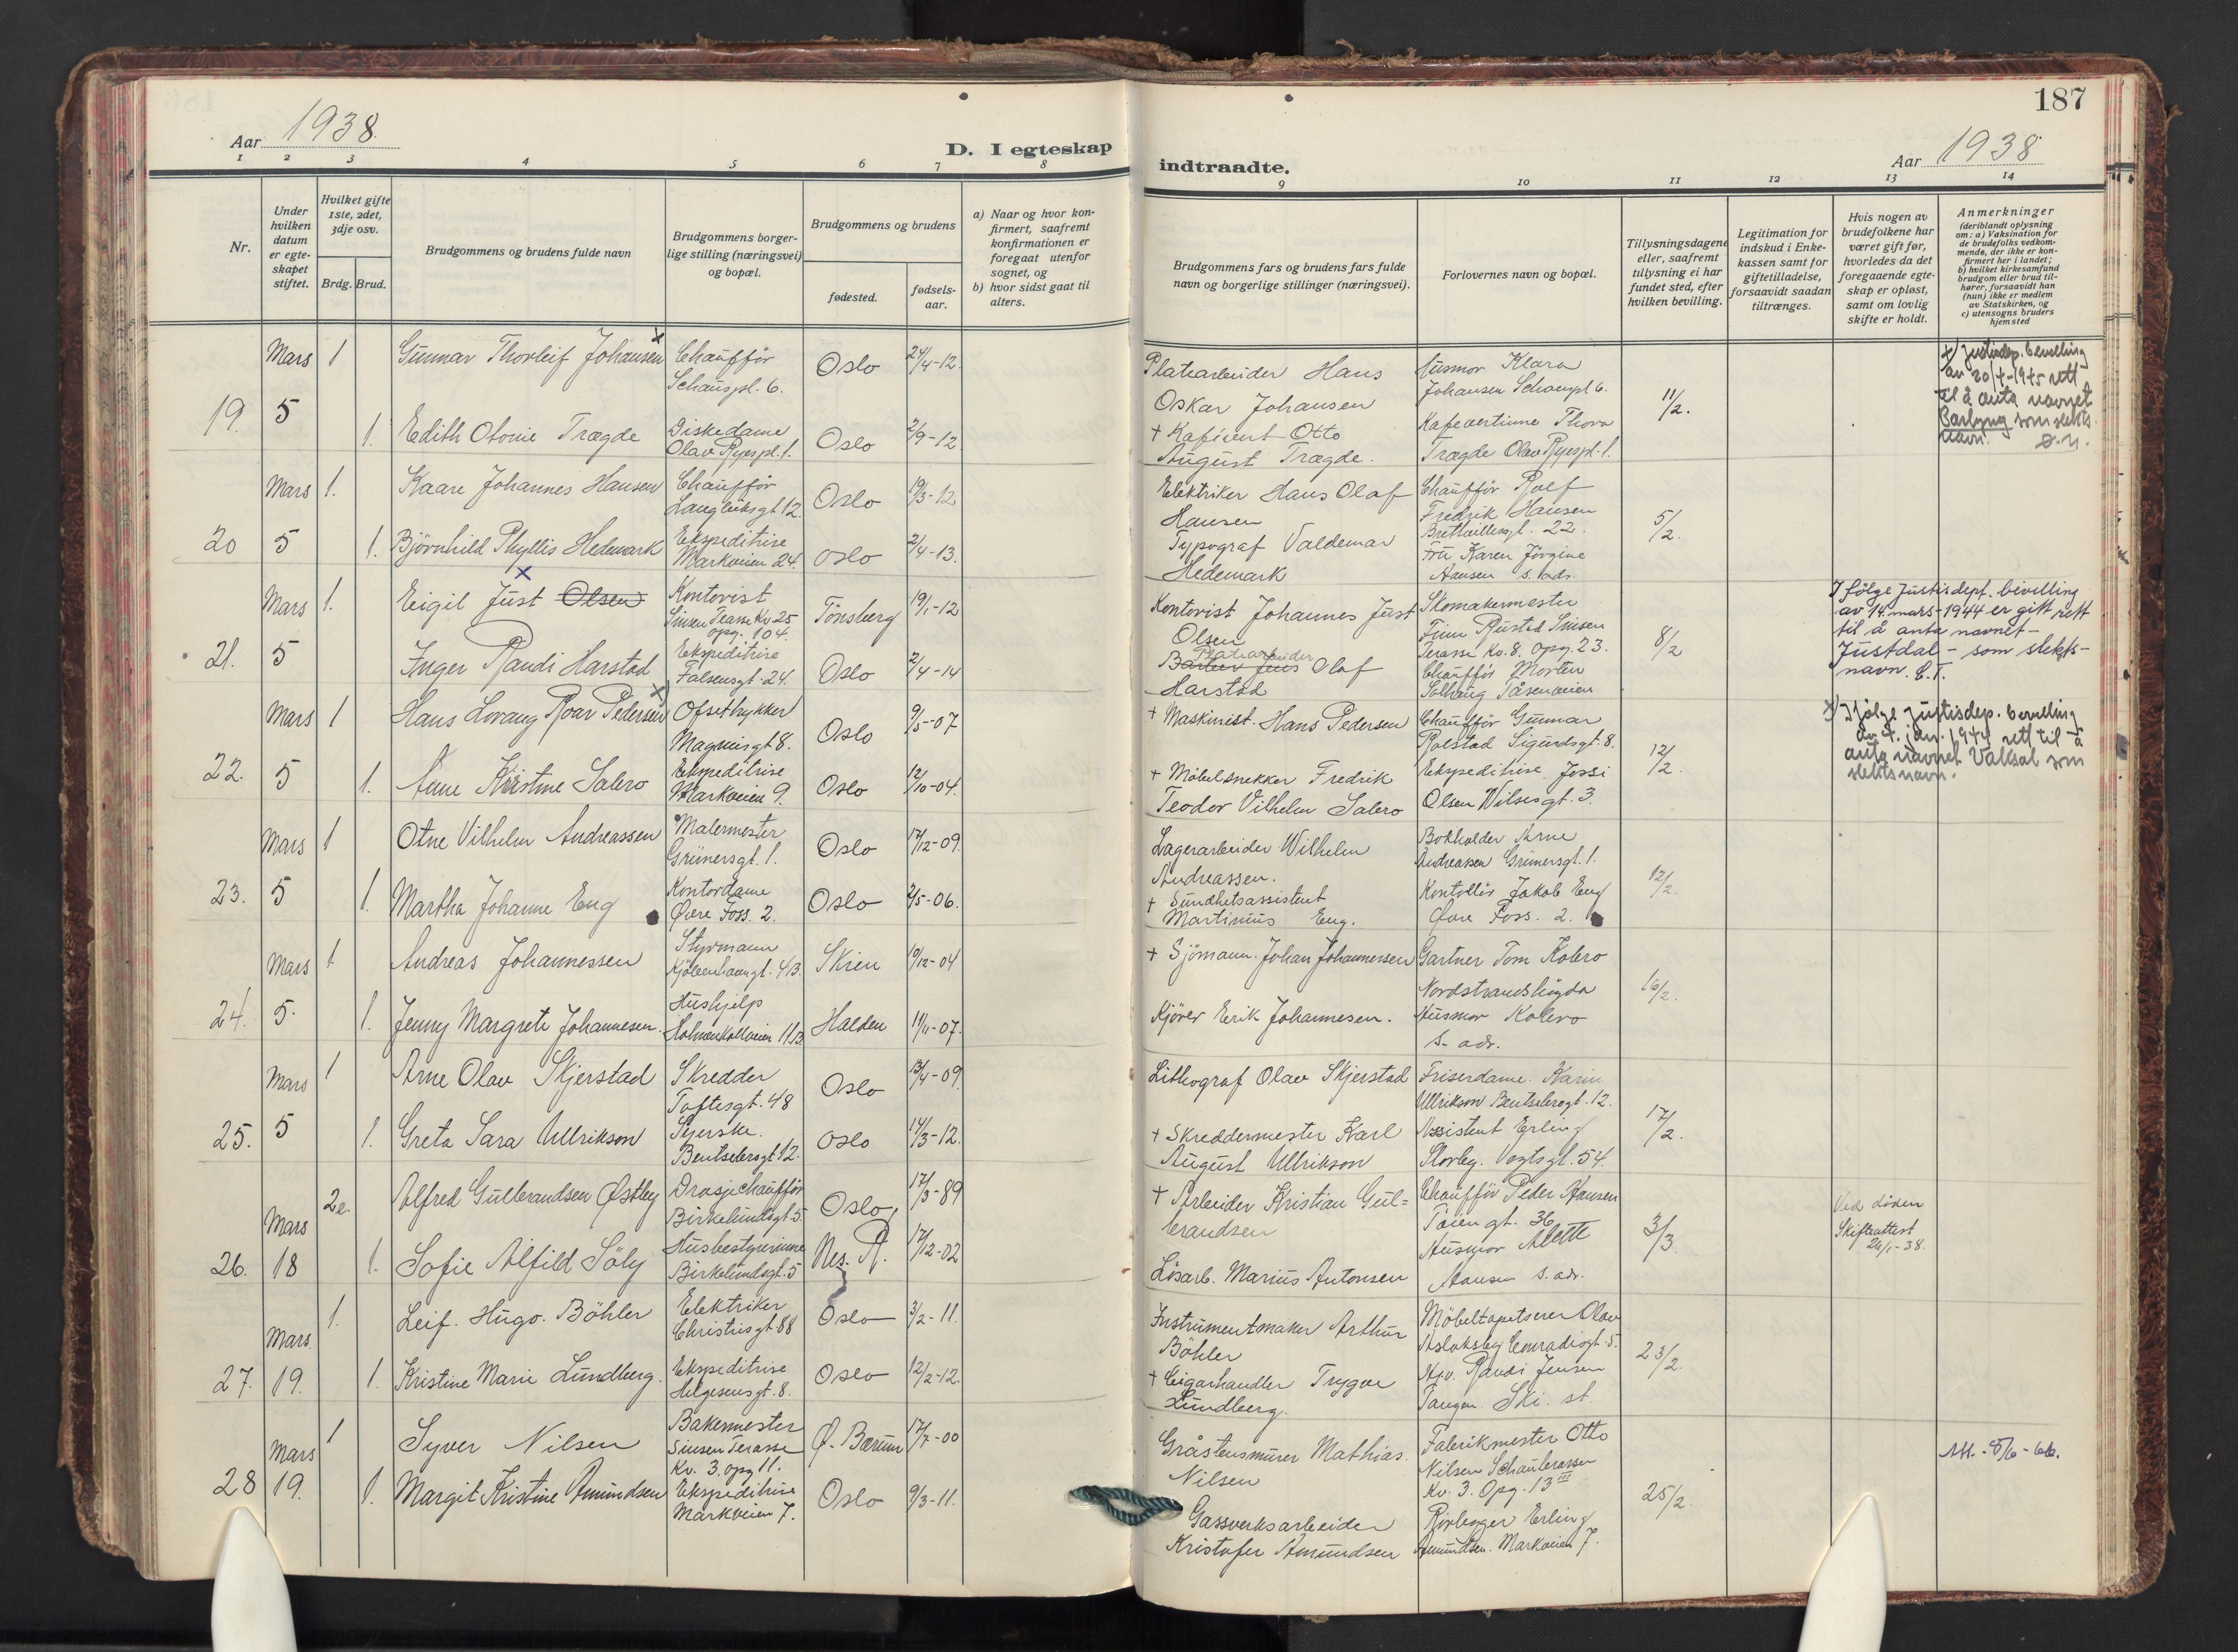 187
Aar 1938.
D. I egteskap
indtraadte.
Aar 1938
1 2 3 4 5 6 7 8
9 10 11 12 13 14
Nr.
Under hvilken datum er egteskapet stiftet.
Hvilket gifte 1ste, 2det, 3dje osv.
Brdg. Brud.
Brudgommens og brudens fulde navn
Brudgommens borgerlige stilling (næringsvei) og bopæl.
Brudgommens og brudens
fødested.
fødselsaar.
a) Naar og hvor konfirmert, saafremt konfirmationen er foregaat utenfor sognet, og
b) hvor sidst gaat til alters.
Brudgommens fars og brudens fars fulde navn og borgerlige stillinger (næringsvei).
Forlovernes navn og bopæl.
Tillysningsdagene eller, saafremt tillysning ei har fundet sted, efter hvilken bevilling.
Legitimation for indskud i Enkekassen samt for giftetilladelse, forsaavidt saadan tiltrænges.
Hvis nogen av brudefolkene har været gift før, hvorledes da det foregaaende egteskap er opløst, samt om lovlig skifte er holdt.
Anmerkninger
(deriblandt oplysning om: a) Vaksination for de brudefolks vedkommende, der ikke er konfirmert her i landet; b) hvilket kirkesamfund brudgom eller brud tilhører, forsaavidt han (hun) ikke er medlem av Statskirken, og c) utensogns bruders hjemsted
19. Mars 5
1 Gunnar Thorleif Johansen x
Chauffør Schauspl. 6.
Oslo 24/4-12.
Platearbeider Hans Oskar Johansen
Husmor Klara Johansen Schauspl 6.
11/2.
x) Justisdep. bevilling av 20/4-1945 rett til å anta navnet som slektsnavn.
1. Edith Otonie Trægde
Diskedame Olav Ryespl. 1.
Oslo 2/9-12
+ Kafévert Otto August Trægde.
Kafevertinne Thora Trægde Olav Ryespl. 1.
20 Mars 5
1. Kaare Johannes Hansen
Chauffør Langleiksgt 12.
Oslo 19/3-12
Elektriker Hans Olaf Hansen
Chauffør Rolf Fredrik Hansen 22.
5/2.
1. Bjørnhild Phyllis Hedemark
Ekspeditrise Markveien 24.
Oslo 2/4-13.
Typograf Valdemar Hedemark
Fru Karen Jörgine Hansen s. adr.
21. Mars 5
1. Eigil Just Olsen x
Kontorist Sinsen Terasse Kv 25 opg. 104.
Tönsberg 19/1-12
Kontorist Johannes Just Olsen
Skomakermester Finn Rustad Sinsen Terasse Kv. 8. opg. 23.
8/2
I följe Justisdept. bevilling av 14. mars-1944 er gitt rett til å anta navnet - Justdal - som slektsnavn. E.T.
Inger Randi Harstad
Ekspeditrise Falsensgt. 24.
Oslo 2/4-14
Platearbeider Olaf Harstad
Chauffør Morten Solhaug Tåsenveien
22. Mars 5
1 Hans Lovang Roar Pedersen x
Ofsettrykker Magnusgt 8.
Oslo 9/5-07
+ Maskinist. Hans Pedersen
Chauffør Gunnar Rolstad Sigurdsgt. 8.
12/2.
x) I følge Justisdep. bevilling av 4. jan. 1944 rett til å anta navnet Valksal som slektsnavn.
1. Anne Kristine Salero
Ekspeditrise Markveien 9.
Oslo 12/10-04.
+ Möbelsnekker Fredrik Teodor Vilhelm Salero
Ekspeditrise Jossi Olsen Nilsesgt. 3.
23. Mars 5
1 Otne Vilhelm Andreassen
Malermester Grünersgt. 1.
Oslo 17/12-09.
Lagerarbeider Wilhelm Andreassen.
Bokholder Arne Andreassen Grünersgt. 1.
12/2.
1. Martha Johanne Eng
Kontordame Øvre Foss. 2.
Oslo 2/5-06.
+ Sundhetsassistent Martinius Eng.
Kontollör Jakob Eng Øvre Foss. 2.
24. Mars 5.
1. Andreas Johannessen
Styrmann Kjöbenhavngt. 4B.
Skien 10/12-04
+ Sjömann. Johan Johannessen
Gartner Tom Kolero Nordstrandshögda
16/2.
1. Jenny Margrete Johannesen.
Hushjelp Holmenkollveien 11B.
Halden 11/11-07.
Kjörer Erik Johannesen.
Husmor Kolero s. adr.
25. Mars 5
1 Arne Olav Skjerstad
Skredder Toftesgt. 48
Oslo 13/4-09.
Lithograf Olav Skjerstad
Friserdame. Karin Ullrikson Bentsebrogt. 12.
17/2.
1. Greta Sara Ullrikson
Syerske. Bentsebrogt 12.
Oslo 14/3-12.
+ Skreddermester Karl August Ullrikson
Assistent Erling Vogtsgt. 54.
26. Mars 18
2e. Alfred Gulbrandsen Østby
Drosjechauffør Birkelundsgt. 5.
Oslo, 17/3-89
+ Arbeider Kristian Gulbrandsen
Chauffør Peder Hansen Töiengt. 36
3/3.
Ved döden Skifteattest 26/1-38.
1. Sofie Alfild Söly
Husbestyrerinne Birkelundsgt. 5
Nes. R. 17/12-02
Lösarb. Marius Antonsen
Husmor Hansen s. adr.
27. Mars. 19.
1. Leif. Hugo. Böhler
Elektriker Christiesgt. 88
Oslo 3/2-11.
Instrumentmaker Arthur Böhler
Möbeltapetserer Olav Aslaksby Conradisgt. 5.
23/2.
1. Kristine Marie Lundberg.
Ekspeditrise Helgesensgt. 8.
Oslo 12/2-12.
+ Cigarhandler Trygve Lundberg.
Randi Jensen Tangen Ski. st.
28 Mars 19.
1 Syver Nilsen
Bakermester Sinsen Terasse Kv. 3. opg 11.
Ø. Bærum 17/7-00
Gråstensmurer Mathias. Nilsen
Fabrikmester Otto Nilsen Kv. 3. Opg. 13 III
25/2.
Att. - 8/6 - 66.
1. Margit Kristine Amundsen
Ekspeditrise Markveien 7.
Oslo 9/3-11.
Gassverksarbeider Kristofer Amundsen
Rörlegger Erling Amundsen. Markveien 7.